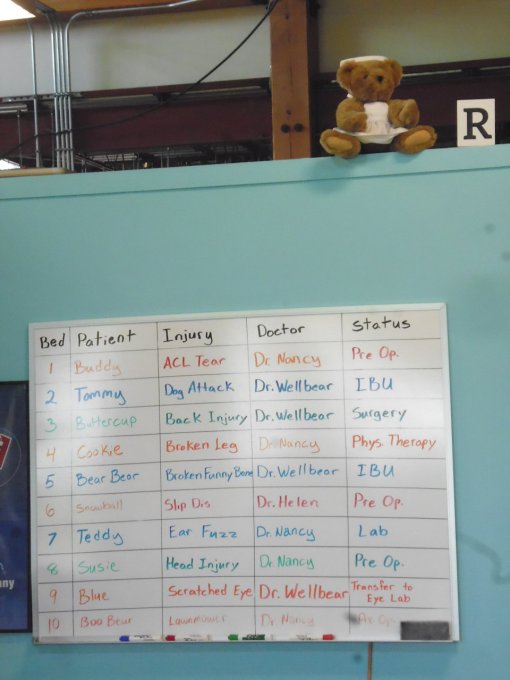 R
Bed Patient Injury Doctor Status
1 Buddy ACL Tear Dr. Nancy Pre Op.
2 Tommy Dog Attack Dr. Wellbear IBU
3 Buttercup Back Injury Dr. Wellbear Surgery
4 Cookie Broken Leg Dr. Nancy Phys. Therapy
5 Bear Bear Broken Funny Bone Dr. Wellbear IBU
6 Snowball Slip Dis Dr. Helen Pre Op.
7 Teddy Ear Fuzz Dr. Nancy Lab
8 Susie Head Injury Dr. Nancy Pre Op.
9 Blue Scratched Eye Dr. Wellbear Transfer to
Eye Lab
10 Boo Bear Lawnmower Dr. Nancy Pre Op.